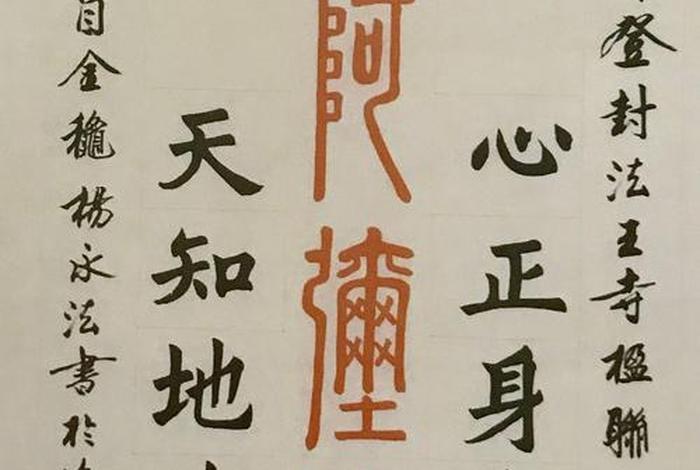 登封法王寺楹聯
心正身
阿彌
天知地
金龝楊永法書於